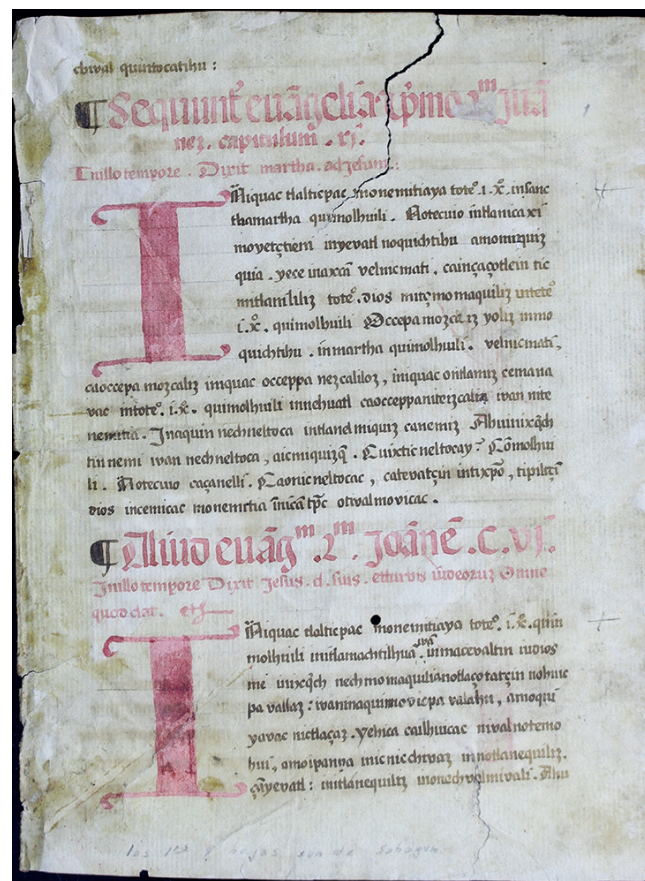 chival quintocatihu :
¶ Sequunt̃ euãgeliã. ẜm
nez. capitulum . xi.
In illo tempore . Dixit martha . ad jesum :
INiquac tlalticpac monemitiaya toteº. i. xº. in sanc
tha martha quimolhuili . Notecuio intlanica xi
moyetztieni inyevatl noquichtihu amo miquiz
quia . yece inaxcã velnicmati , cainçaçotlein tic
mitlanililiz toteº. dios mitzmomaquiliz inteteº
i. xº. quimolhuili Occepa mozcaliz yoliz inmo
quichtihu . in martha quimolhuili . velnicmati ,
caoccepa mozcaliz iniquac occeppa nezcaliloz , iniquac ontlamiz cemana
vac intoteº. i. xº. quimolhuili innehuatl caocceppaniteizcaliz ivan nite
nemitia . Inaquin nechneltoca intlanel miquiz canemiz Ahuinixq̃ch
tin nemi ivan nechneltoca , aicmiquizq̃ . Cuixticneltocay ? Cõmolhui
li . Notecuio caçanelli . Caonicneltocac , catevatzin intixpõ , tipiltzĩ
dios incemicac monemitia inicã tp̃c otivalmovicac .
¶ Aliud euãgm . 2m . Joãnẽ . c . vi .
In illo tempore Dixit Jesus . d . suis . et turbis iudeoruz Omne
quod dat .
INiquac tlalticpac monemitiaya toteº. i. xº. quim
molhuili initlamachtilhuã ivã inmacevaltin iudios
me inixq̃ch nechmomaquilia notlaçotatzin nohuic
pa vallaz : ivaninaquin novicpa valahu , amo qui
yavac nictlaçaz . yehica cailhuicac nivalnotemo
hui , amo ipanpa inic nicchivaz innotlanequiliz .
çãyevatl : initlanequiliz inonechvalmivali . Ahu